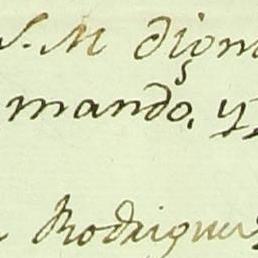 S. M dign
mando, y
Rodriguez